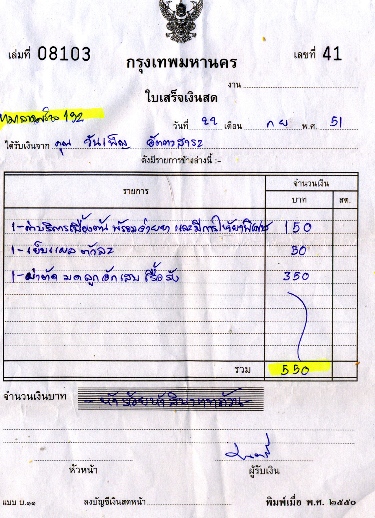 เล่มที่ 08103
กรุงเทพมหานคร
เลขที่ 41
งาน
ใบเสร็จเงินสด
วันที่ 22 เดือน กย พ.ศ. 51
ได้รับเงินจาก คุณ วันเพ็ญ
ดังมีรายการข้างล่างนี้ :-
รายการ จำนวนเงิน
บาท สต.
1-ค่าบริการเบื้องต้น พร้อมจ่ายยา และมีการให้ยาพิเศษ 150
1-เย็บแผล ตัวละ 50
1-ผ่าตัด มดลูกอักเสบ เรื้อรัง 350
รวม 550
จำนวนเงินบาท
หัวหน้า ผู้รับเงิน
แบบ ป.๑๑ ลงบัญชีเงินสดหน้า พิมพ์เมื่อ พ.ศ. ๒๕๕๐